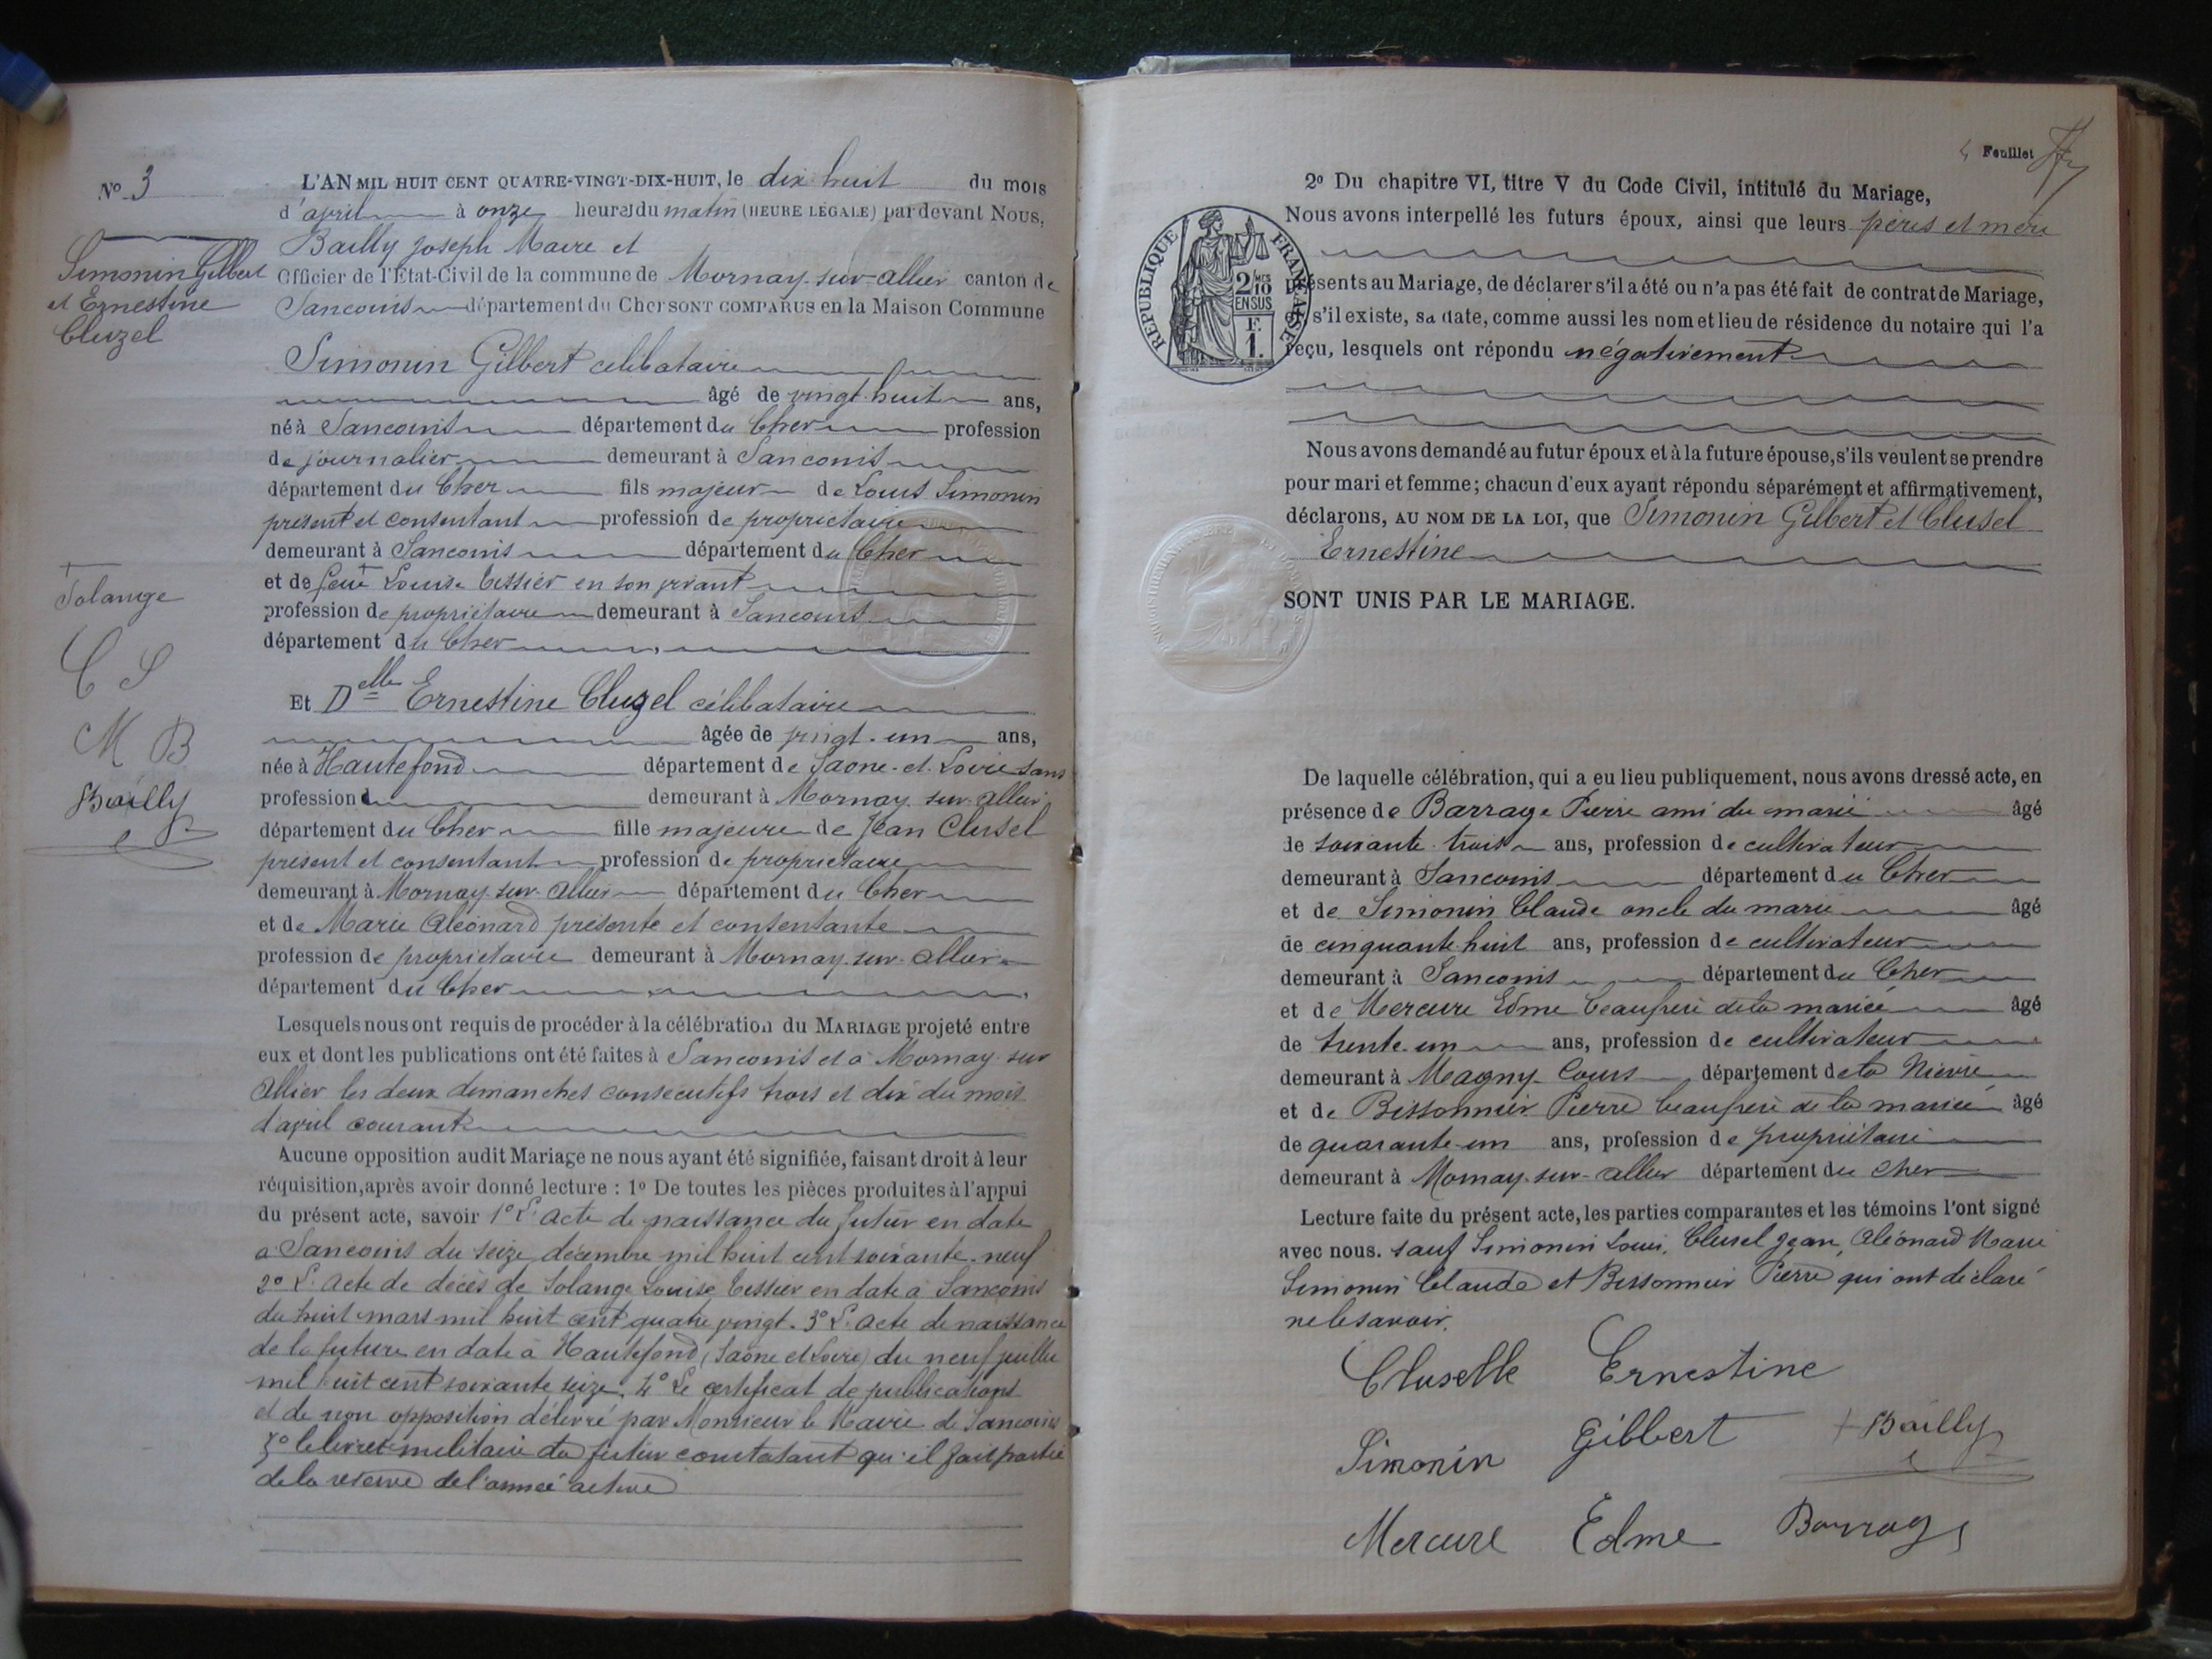 No 3
Simonin Gilbert
et Ernestine
Cluzel
+
Solange
C S
M B
Bailly
L'AN MIL HUIT CENT QUATRE-VINGT-DIX-HUIT, le dix huit du mois
d'april à onze heures du matin (HEURE LÉGALE) par devant Nous,
Bailly Joseph Maire et
Officier de l'État-Civil de la commune de Mornay-sur-Allier canton de
Sancoins département du Cher SONT COMPARUS en la Maison Commune
Simonin Gilbert célibataire
âgé de vingt-huit ans,
né à Sancoins département du Cher profession
de journalier demeurant à Sancoins
département du Cher fils majeur de Louis Simonin
présent et consentant profession de propriétaire
demeurant à Sancoins département du Cher
et de feue + Louise Tessier en son vivant
profession de propriétaire demeurant à Sancoins
département du Cher
Et Delle Ernestine Cluzel célibataire
âgée de vingt-un ans,
née à Hautefond département de Saone-et-Loire sans
profession demeurant à Mornay-sur-Allier
département du Cher fille majeure de Jean Clusel
présent et consentant profession de propriétaire
demeurant à Mornay-sur-Allier département du Cher
et de Marie Aléonard présente et consentante
profession de propriétaire demeurant à Mornay-sur-Allier
département du Cher
Lesquels nous ont requis de procéder à la célébration du MARIAGE projeté entre
eux et dont les publications ont été faites à Sancoins et à Mornay-sur
Allier les deux dimanches consécutifs trois et dix du mois
d'april courant
Aucune opposition audit Mariage ne nous ayant été signifiée, faisant droit à leur
réquisition, après avoir donné lecture : 1o De toutes les pièces produites à l'appui
du présent acte, savoir 1° L'acte de naissance du futur en date
à Sancoins du seize décembre mil huit cent soixante-neuf
2° L'acte de décès de Solange Louise Tessier en date à Sancoins
du huit mars mil huit cent quatre vingt. 3° L'acte de naissance
de la future en date à Hautefond (Saône et Loire) du neuf juillet
mil huit cent soixante seize. 4° Le certificat de publications
et de non opposition délivré par Monsieur le Maire de Sancoins
5° le livret militaire du futur constatant qu'il fait partie
de la réserve de l'armée active
Feuillet
2o Du chapitre VI, titre V du Code Civil, intitulé du Mariage,
Nous avons interpellé les futurs époux, ainsi que leurs pères et mère
présents au Mariage, de déclarer s'il a été ou n'a pas été fait de contrat de Mariage,
et s'il existe, sa date, comme aussi les nom et lieu de résidence du notaire qui l'a
reçu, lesquels ont répondu négativement
RÉPUBLIQUE FRANÇAISE
2/10 MES
EN SUS
F.
1.
Nous avons demandé au futur époux et à la future épouse, s'ils veulent se prendre
pour mari et femme ; chacun d'eux ayant répondu séparément et affirmativement,
déclarons, AU NOM DE LA LOI, que Simonin Gilbert et Clusel
Ernestine
SONT UNIS PAR LE MARIAGE.
De laquelle célébration, qui a eu lieu publiquement, nous avons dressé acte, en
présence de Barrage Pierre ami du marié âgé
de soixante-trois ans, profession de cultivateur
demeurant à Sancoins département du Cher
et de Simonin Claude oncle du marié âgé
de cinquante-huit ans, profession de cultivateur
demeurant à Sancoins département du Cher
et de Mercure Edme beaufrère de la mariée âgé
de trente-un ans, profession de cultivateur
demeurant à Magny-Cours département de la Nièvre
et de Bissonnier Pierre beaufrère de la mariée âgé
de quarante-un ans, profession de propriétaire
demeurant à Mornay-sur-Allier département du Cher
Lecture faite du présent acte, les parties comparantes et les témoins l'ont signé
avec nous. sauf Simonin Louis, Clusel Jean, Aléonard Marie
Simonin Claude et Bissonnier Pierre qui ont déclaré
ne le savoir.
Cluselle Ernestine
Simonin Gilbert Bailly
Mercure Edme Barrage